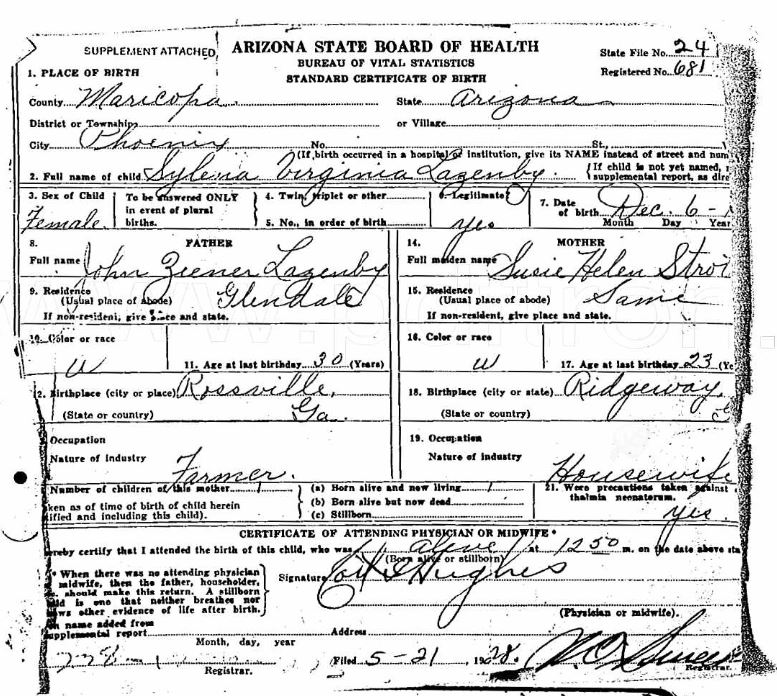 SUPPLEMENT ATTACHED
ARIZONA STATE BOARD OF HEALTH
BUREAU OF VITAL STATISTICS
STANDARD CERTIFICATE OF BIRTH
State File No. 24
Registered No. 681
1. PLACE OF BIRTH
County Maricopa State Arizona
District or Township or Village
City Phoenix No. St.,
(If birth occurred in a hospital or institution, give its NAME instead of street and num
2. Full name of child Sylvia Virginia Lazenby {If child is not yet named,
supplemental report, as dire
3. Sex of Child Female
To be answered ONLY in event of plural births.
4. Twin, triplet or other
5. No., in order of birth
6. Legitimate? yes
7. Date of birth Dec. 6-
Month Day Year
8. FATHER
Full name John Zeener Lazenby
14. MOTHER
Full maiden name Susie Helen
9. Residence (Usual place of abode) Glendale
If non-resident, give place and state.
15. Residence (Usual place of abode) Same
If non-resident, give place and state.
10. Color or race W
11. Age at last birthday 30 (Years)
16. Color or race W
17. Age at last birthday 23
12. Birthplace (city or place) Rossville,
(State or country) Ga.
18. Birthplace (city or state) Ridgeway,
(State or country)
Occupation
Nature of industry Farmer.
19. Occupation
Nature of industry Housewife
Number of children of this mother 1
ken as of time of birth of child herein
ified and including this child).
(a) Born alive and now living 1
(b) Born alive but now dead
(c) Stillborn
21. Were precautions taken against
thalmia neonatorum. yes
CERTIFICATE OF ATTENDING PHYSICIAN OR MIDWIFE*
ereby certify that I attended the birth of this child, who was alive at 12 50 m. on the date above sta
(Born alive or stillborn)
* When there was no attending physician
midwife, then the father, householder,
should make this return. A stillborn
ild is one that neither breathes nor
ows other evidence of life after birth.
Signature Hughes
(Physician or midwife).
en name added from
supplemental report
Month, day, year
Address
Registrar.
Filed 5-21, 1928.
Registrar.